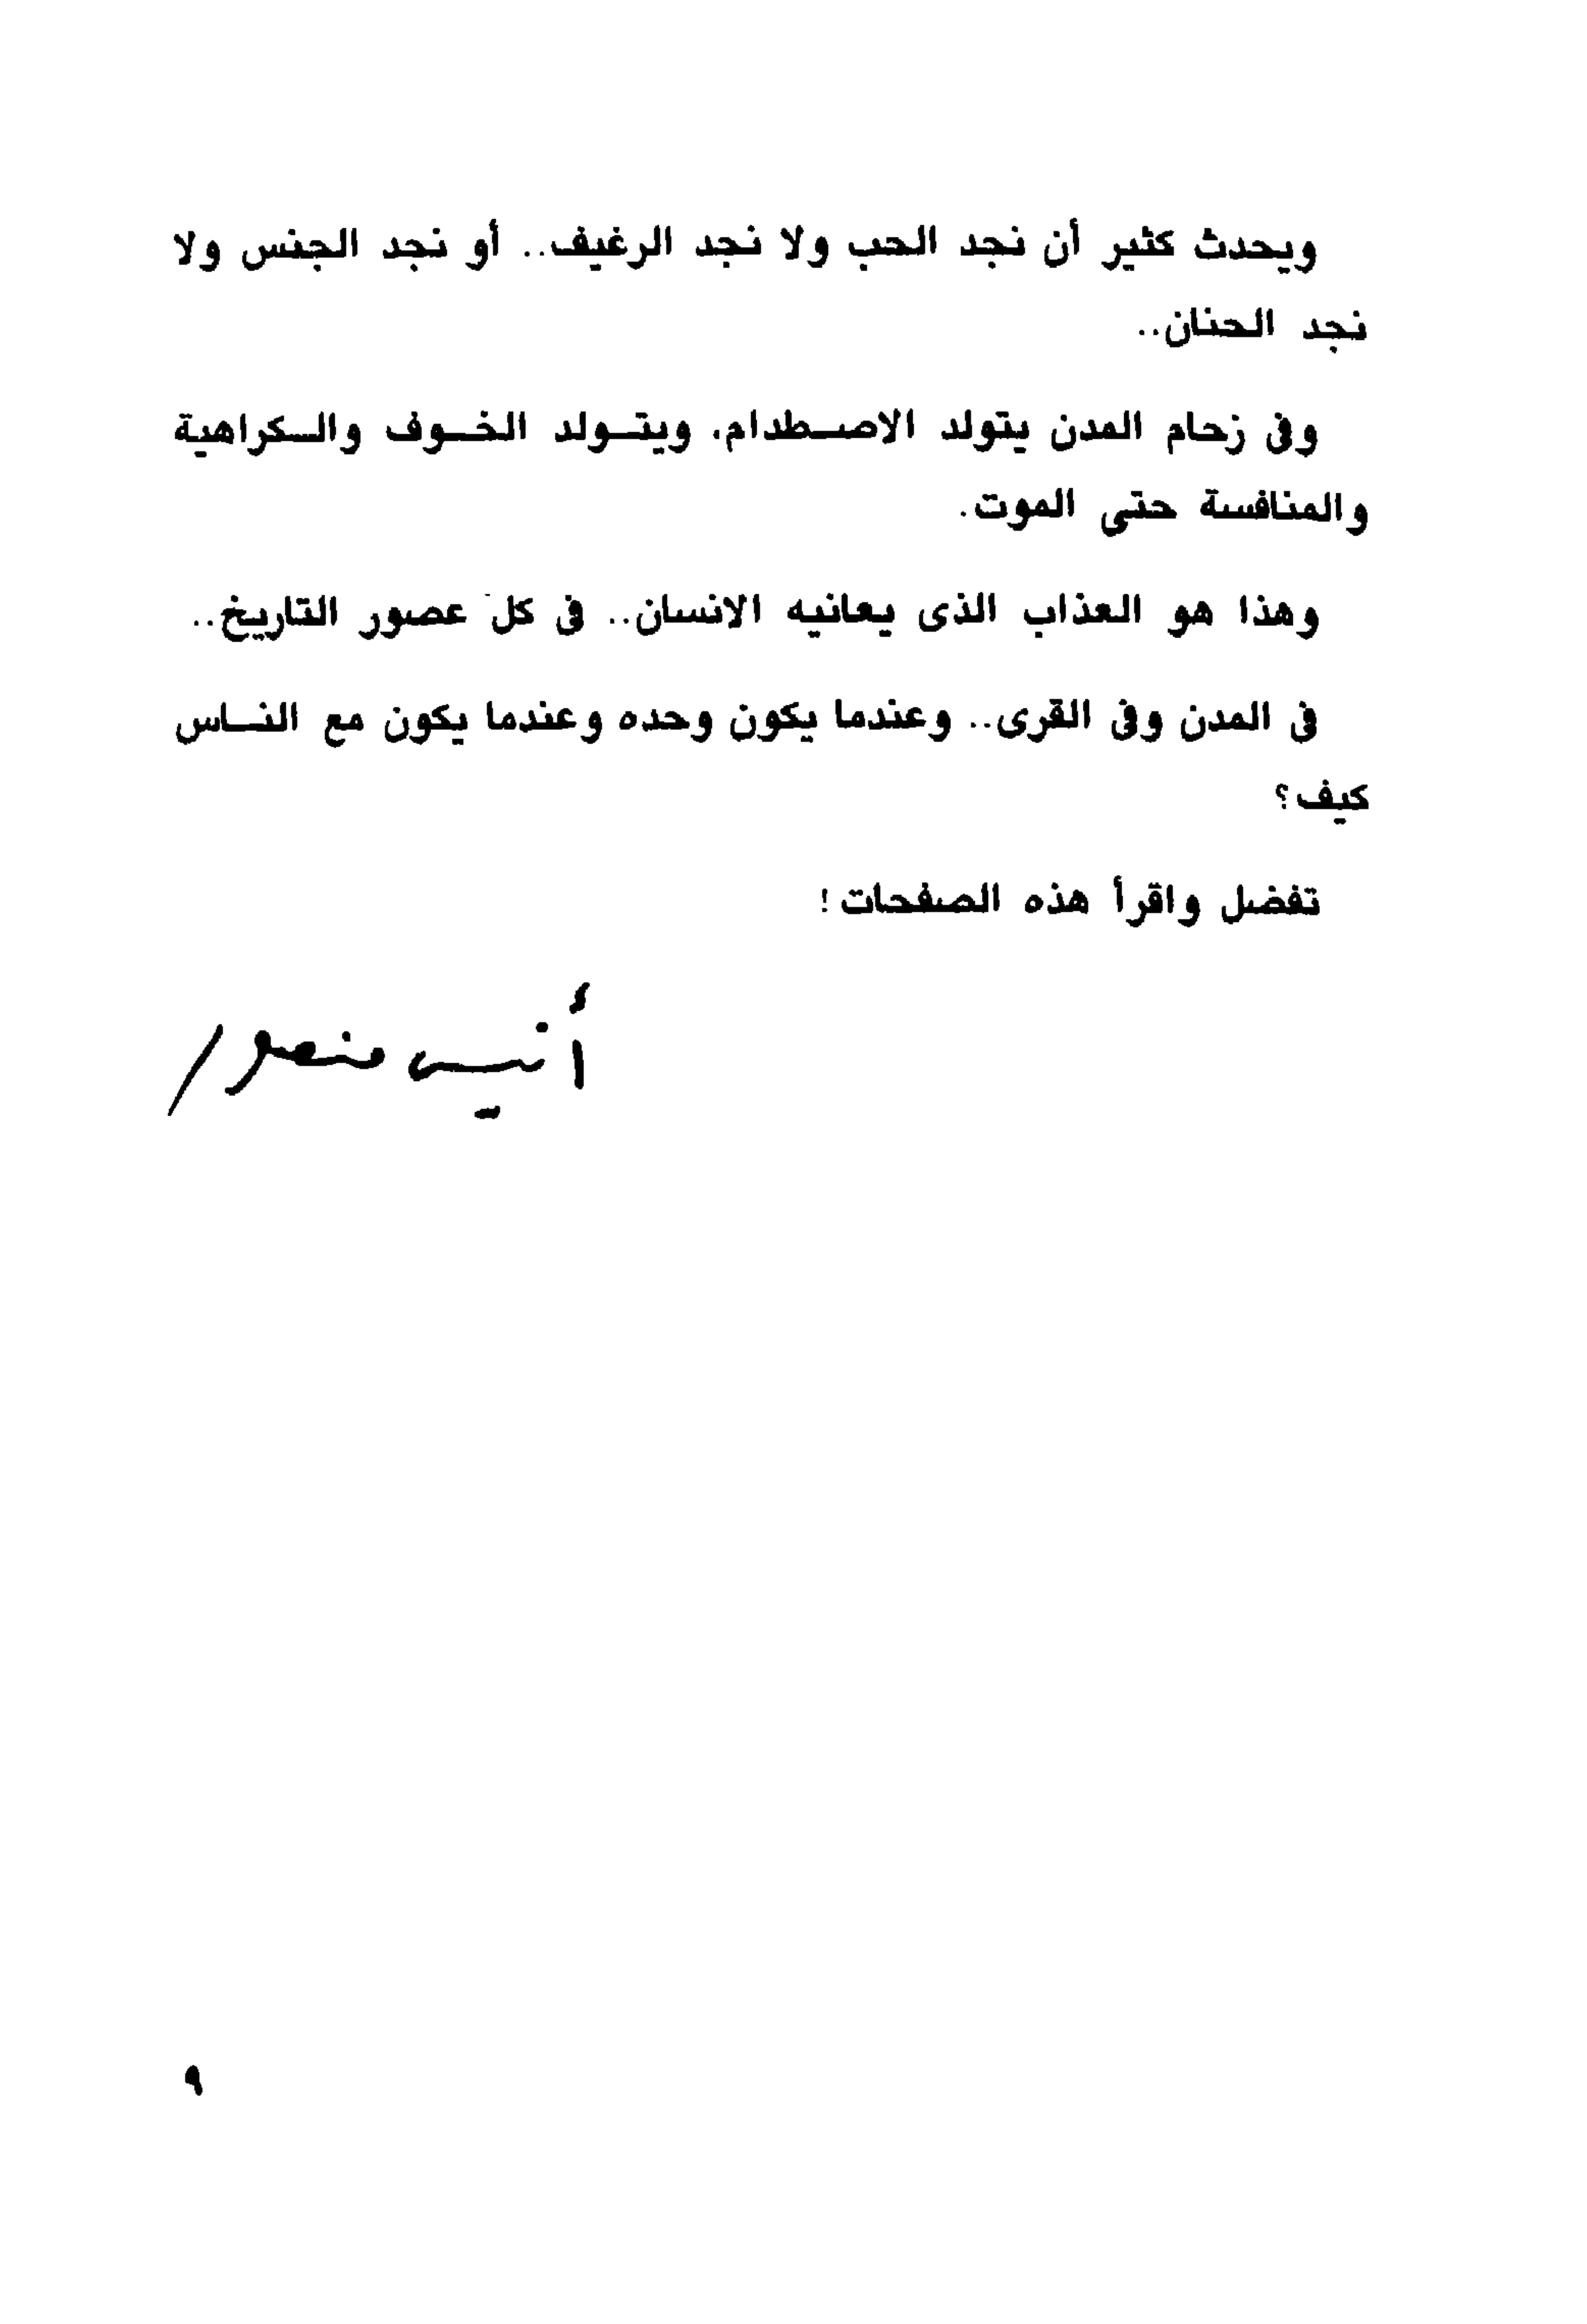 ويحدث كثير أن نجد الحب ولا نجد الرغيف.. أو نجد الجنس ولا
نجد الحنان..
وفى زحام المدن يتولد الاصطدام، ويتولد الخوف والكراهية
والمنافسة حتى الموت.
وهذا هو العذاب الذى يعانيه الانسان.. فى كل عصور التاريخ..
فى المدن وفى القرى.. وعندما يكون وحده وعندما يكون مع الناس
كيف؟
تفضل واقرأ هذه الصفحات!
أنيس منصور
٩